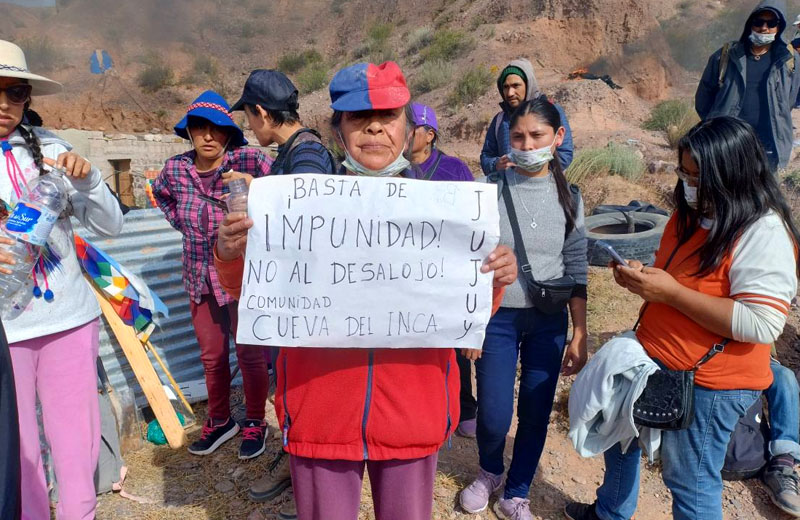 ¡BASTA DE
IMPUNIDAD!
NO AL DESALOJO!
COMUNIDAD
CUEVA DEL INCA
JUJUY